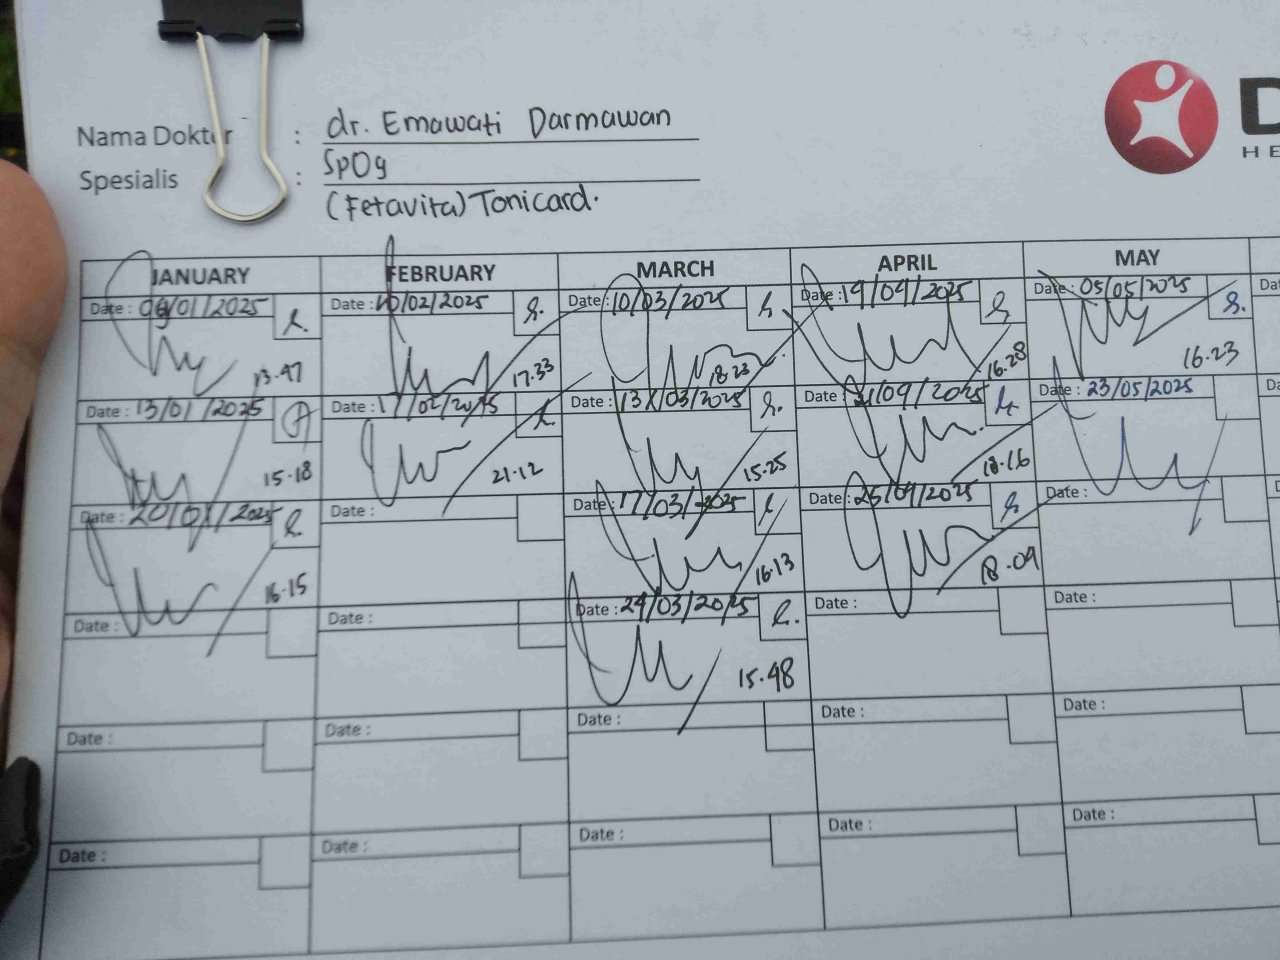 Nama Dokter : dr. Emawati Darmawan
Spesialis : SpOg
(Fetavita) Tonicard.
D
HE
JANUARY FEBRUARY MARCH APRIL MAY
Date : 06/01/2025 Date : 10/02/2025 Date : 10/03/2025 Date : 14/04/2025 Date : 05/05/2025
13.47 17.33 18.23 16.28 16.23
Date : 13/01/2025 Date : 17/02/2025 Date : 13/03/2025 Date : 21/04/2025 Date : 23/05/2025
15.18 21.12 15.25 18.16
Date : 20/01/2025 Date : Date : 17/03/2025 Date : 25/04/2025 Date :
16.15 16.13 18.09
Date : Date : Date : 24/03/2025 Date : Date :
15.48
Date : Date : Date : Date : Date :
Date : Date : Date : Date : Date :